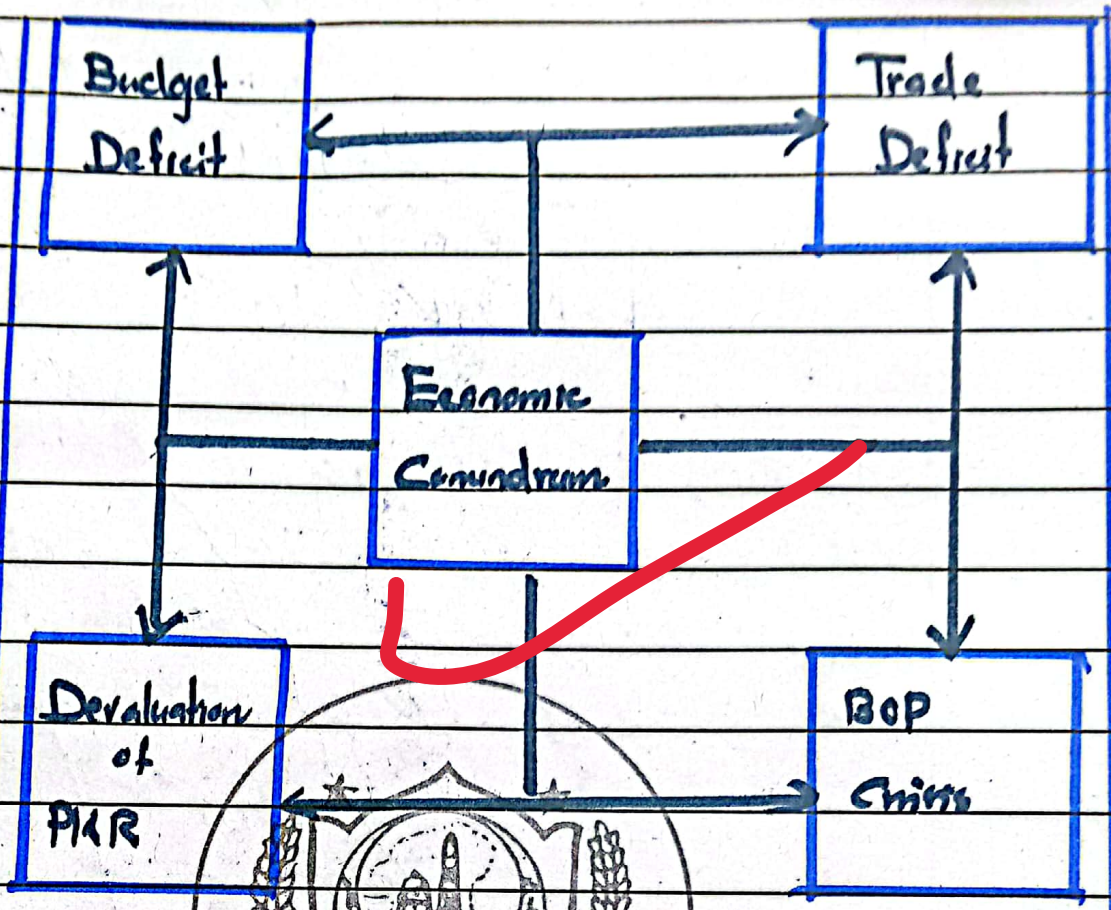 Budget
Deficit
Trade
Deficit
Economic
Conundrum
Devaluation
of
PKR
BOP
Crisis